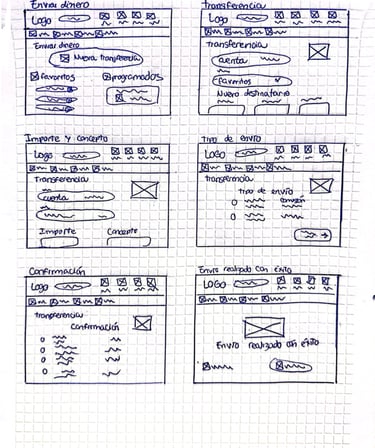 Enviar dinero
Logo
Enviar dinero
Nueva transferencia
Favoritos
programados
transferencia
Logo
transferencia
cuenta
Favoritos
Nuevo destinatario
Importe y concepto
Logo
Transferencia
cuenta
Importe
Concepto
Tipo de envío
LOGO
transferencia
tipo de envío
Confirmación
Logo
transferencia
Confirmación
Envío realizado con éxito
LOGO
Envío realizado con éxito